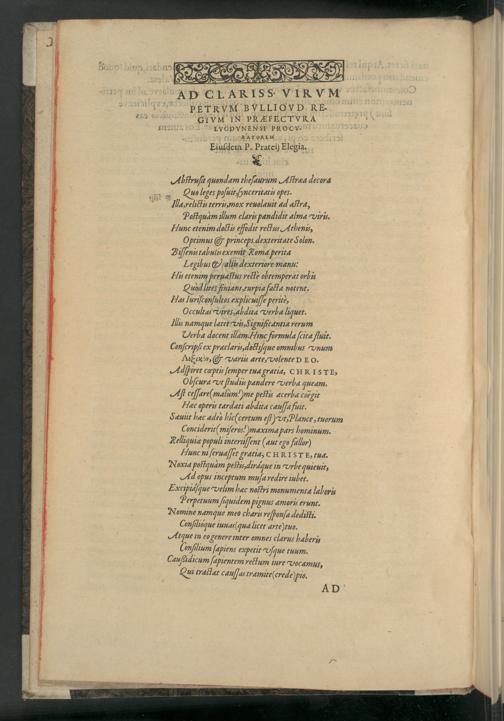 AD CLARISS. VIRVM
PETRVM BVLLIOVD RE-
GIVM IN PRÆFECTVRA
LVGDVNENSI PROCV-
RATOREM
Eiusdem P. Prateij Elegia.
Abstrusit quondam thesaurum Astræa decora
Quo leges posuit, synceritatis opes.
Illa, relictis terris, mox reuolauit ad astra,
Postquàm illum claris pandidit alma viris.
Hunc etenim doctis effodit rectus Athenis,
Optimus & princeps dexteritate Solon.
Bissenis tabulis exemit Roma perita
Legibus & aliis dexteriore manu:
His etenim peruastus rectè obtemperat orbis
Quòd lites finiant, turpia facta notent.
Has Iurisconsultos explicuisse peritè,
Occultas vires, abdita verba liquet.
Illis namque latet vis, Significantia rerum
Verba docent illam. Hinc formula scita fluit.
Conscripsi ex præclaris, doctisque omnibus vnum
Λεξικὸν, & variis arte, volente DEO.
Adspiret cœptis semper tua gratia, CHRISTE,
Obscura vt studiis pandere verba queam.
Ast cessare (malum!) me pestis acerba coëgit
Hac operis tardati abdita caussa fuit.
Sæuiit hac adeò hîc (certum est) vt, Plance, tuorum
Conciderit (miseros!) maxima pars hominum.
Relliquiæ populi interiissent (aut ego fallor)
Hunc ni seruasset gratia, CHRISTE, tua.
Noxia postquàm pestis, diráque in vrbe quieuit,
Ad opus inceptum musa redire iubet.
Excipiásque velim hac nostri monumenta laboris
Perpetuum siquidem pignus amoris erunt.
Nomine namque meo charis responsa dedisti.
Consilióque iuuas (qua licet arte) tuo.
Atque in eo genere inter omnes clarus haberis
Consilium sapiens expetit vsque tuum.
Caussidicum sapientem rectum iure vocamus,
Qui tractat caussas tramite (crede) pio.
AD